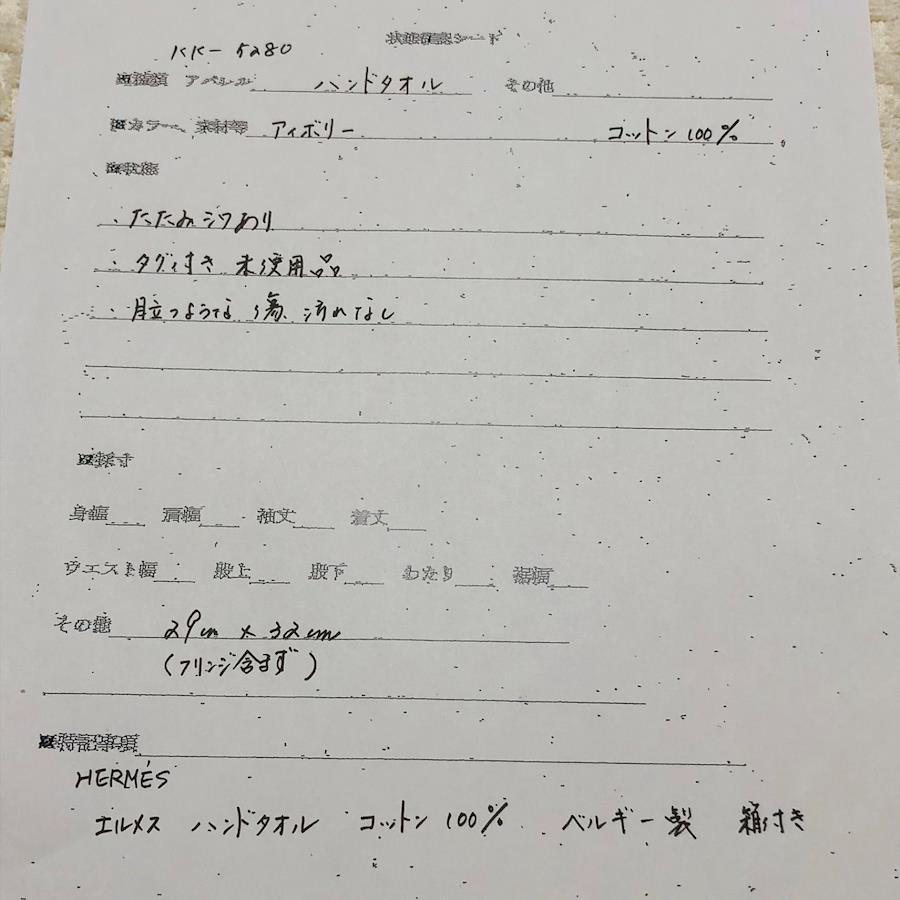 状態確認シート
KK-5280
■種類 アパレル ハンドタオル その他
■カラー、素材等 アイボリー コットン100%
■状態
・たたみジワあり
・タグ付き 未使用品
・目立つような傷、汚れなし
■採寸
身幅 肩幅 袖丈 着丈
ウエスト幅 股上 股下 わたり 裾幅
その他 29cm×32cm
(フリンジ含まず)
■特記事項
HERMÈS
エルメス ハンドタオル コットン100% ベルギー製 箱付き